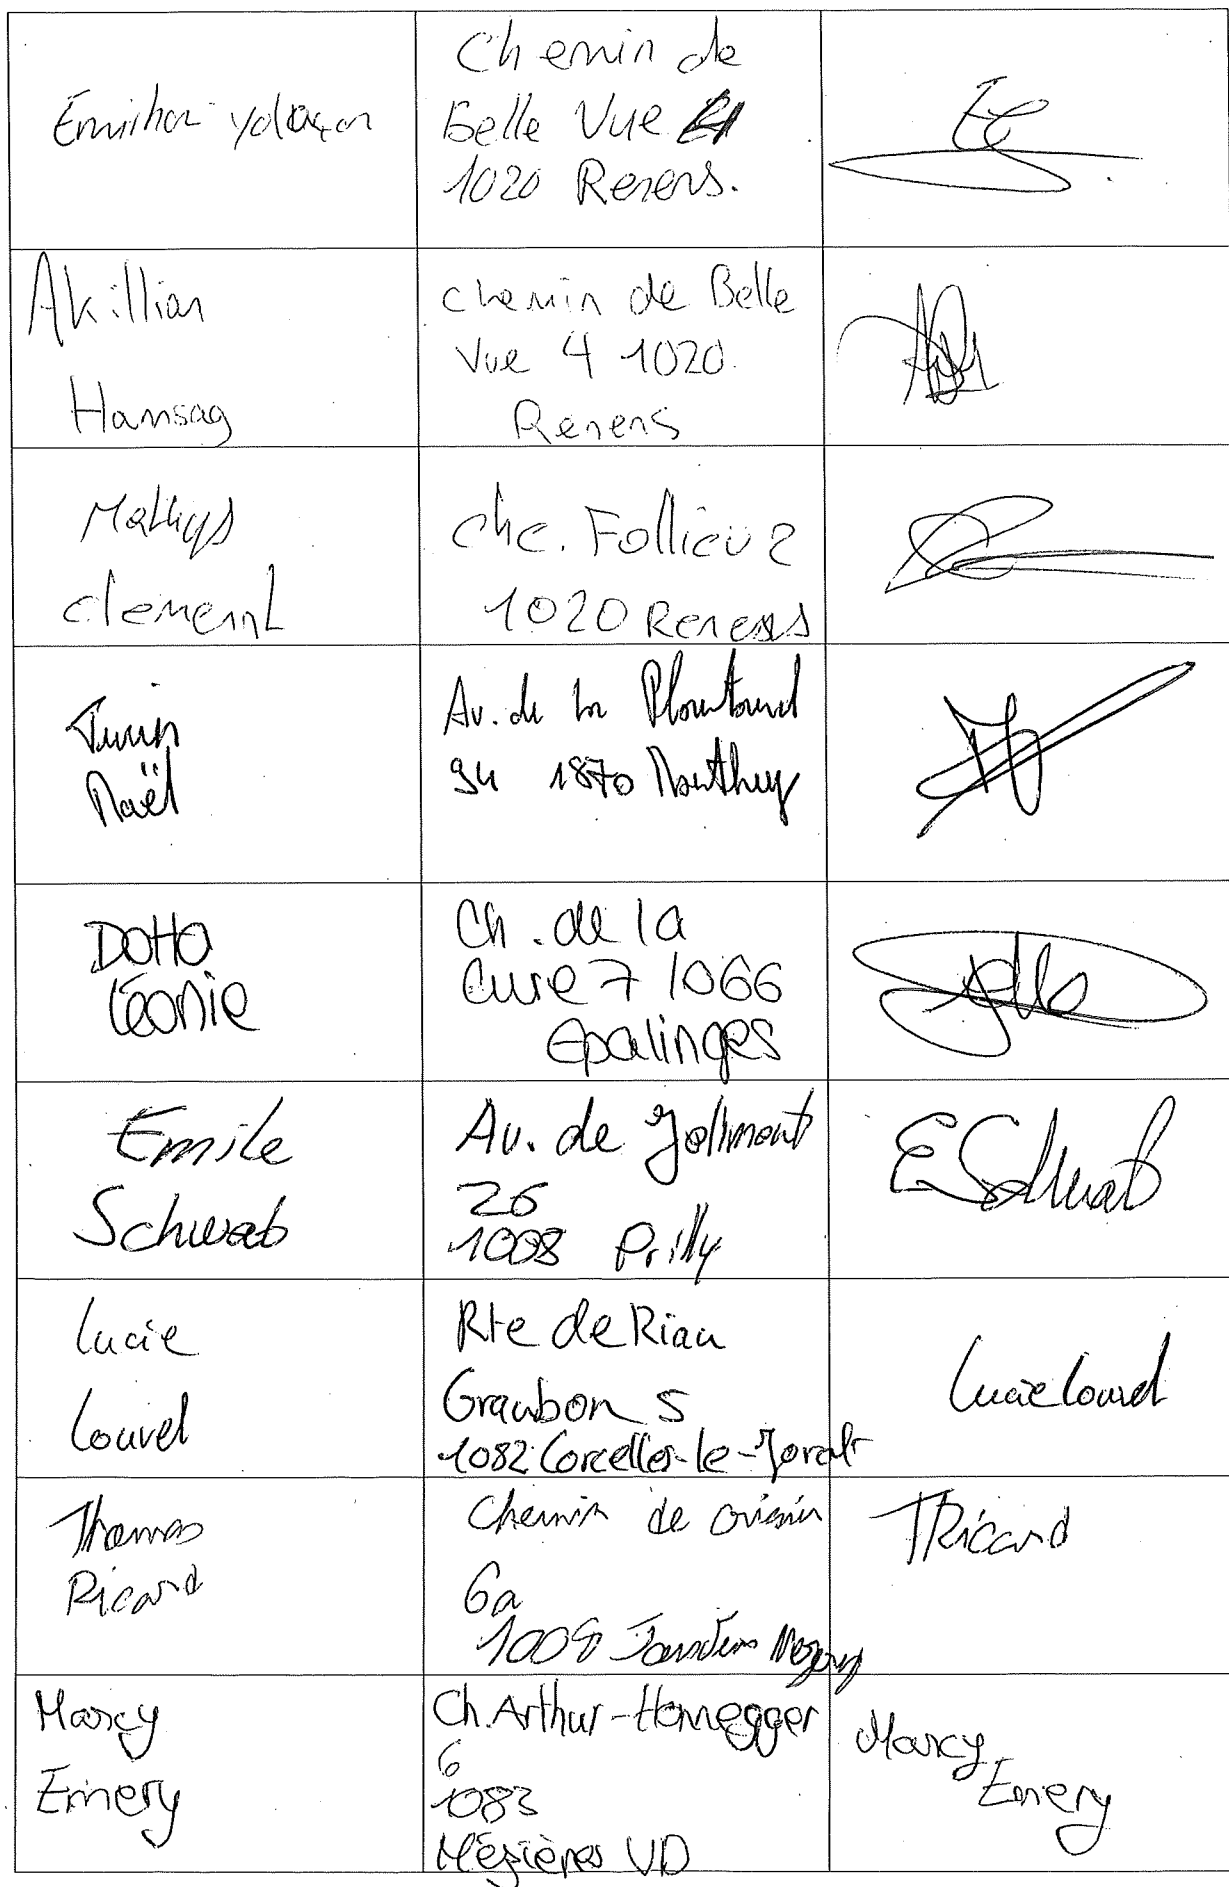 Chemin de
Belle Vue
1020 Renens.
Akillian
Hamsag
chemin de Belle
Vue 4 1020
Renens
Mathys
clement
che. Follieu 2
1020 Renens
Noël
Av. de la
94 1870 Monthey
DOTTO
Léonie
Ch. de la
Cure 7 1066
Epalinges
Emile
Schwab
Av. de Jolimont
26
1008 Prilly
ESchwab
Lucie
Louvel
Rte de Riau
Graubon 5
1082 Corcelles-le-Jorat
Lucie Louvel
Thomas
Ricard
Chemin de
6a
TRicard
Marcy
Emery
Ch. Arthur-Honegger
6
1083
Mézières VD
Marcy
Emery